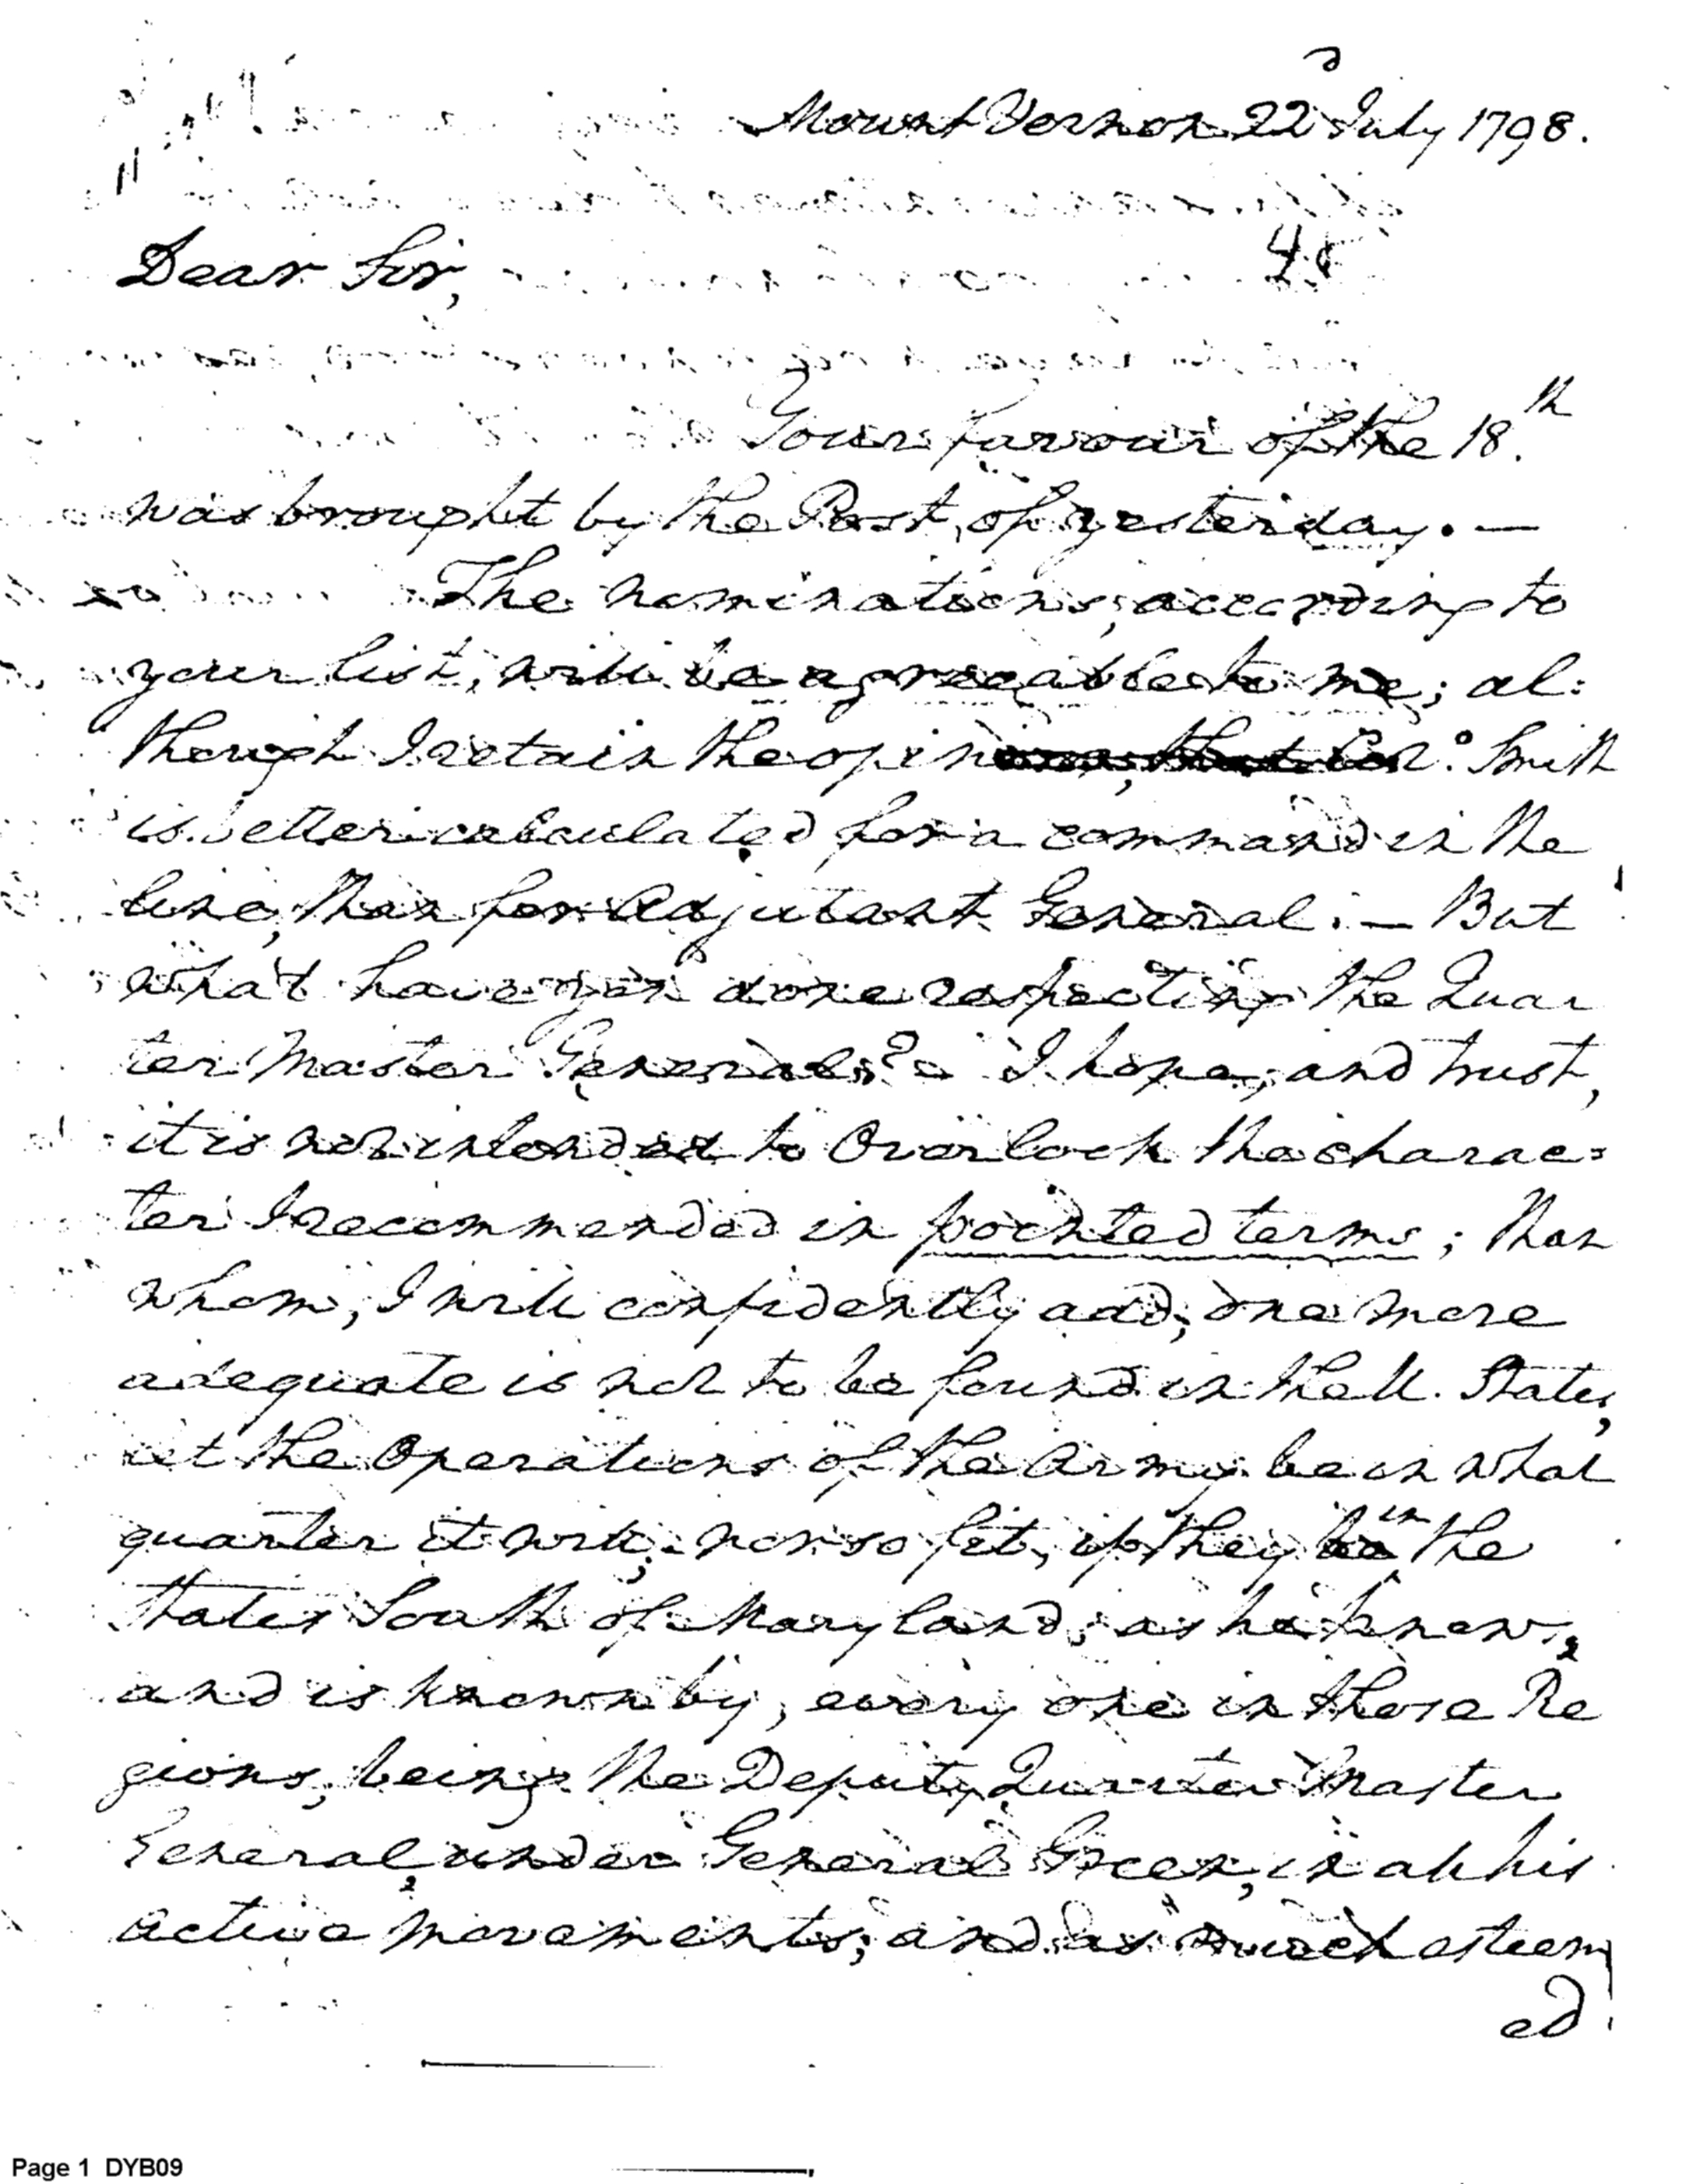 Mount Vernon 22d July 1798.
Dear Sir,
Your favour of the 18.th
was brought by the Post, of yesterday. —
The nominations, according to
your list, will be agreeable to me; al:
though I retain the opinion, that Colo. Smith
is better calculated for a command in the
line, than for Adjutant General. — But
what have you done respecting the Quar
ter Master General? — I hope, and trust,
it is not intended to Overlook the charac=
ter I recommended in pointed terms; than
whom, I will confidently add, one more
adequate is not to be found in the U. States,
let the Operations of the Army be in what
quarter it will; nor so fit, if they be in the
States South of Maryland; as he knows,
and is known by, every one in those Re
gions, being the Deputy Quarter Master
General, under General Green, in all his
active movements; and as much esteem
ed
Page 1 DYB09